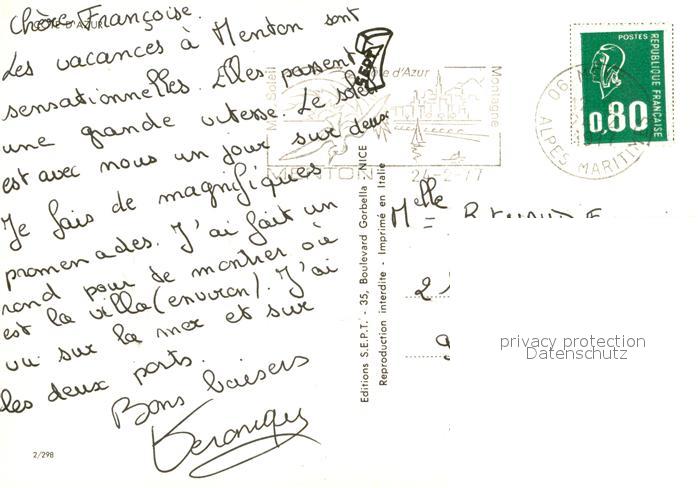 CÔTE D'AZUR
Chère Françoise.
Les vacances à Menton sont
sensationnelles. Elles passent à
une grande vitesse. Le soleil
est avec nous un jour sur deux
Je fais de magnifiques
promenades. J'ai fait un
rond pour de montrer où
est la villa (environ). J'ai
vu sur la mer et sur
les deux ports.
Bons baisers
Veronique
2/298
SEPT
Mer Soleil
Côte d'Azur
Montagne
MENTON
24-2-77
Editions S.E.P.T. - 35, Boulevard Gorbella - NICE
Reproduction interdite - Imprimé en Italie
POSTES
REPUBLIQUE FRANÇAISE
0,80
06
ALPES MARITIMES
Melle
privacy protection
Datenschutz